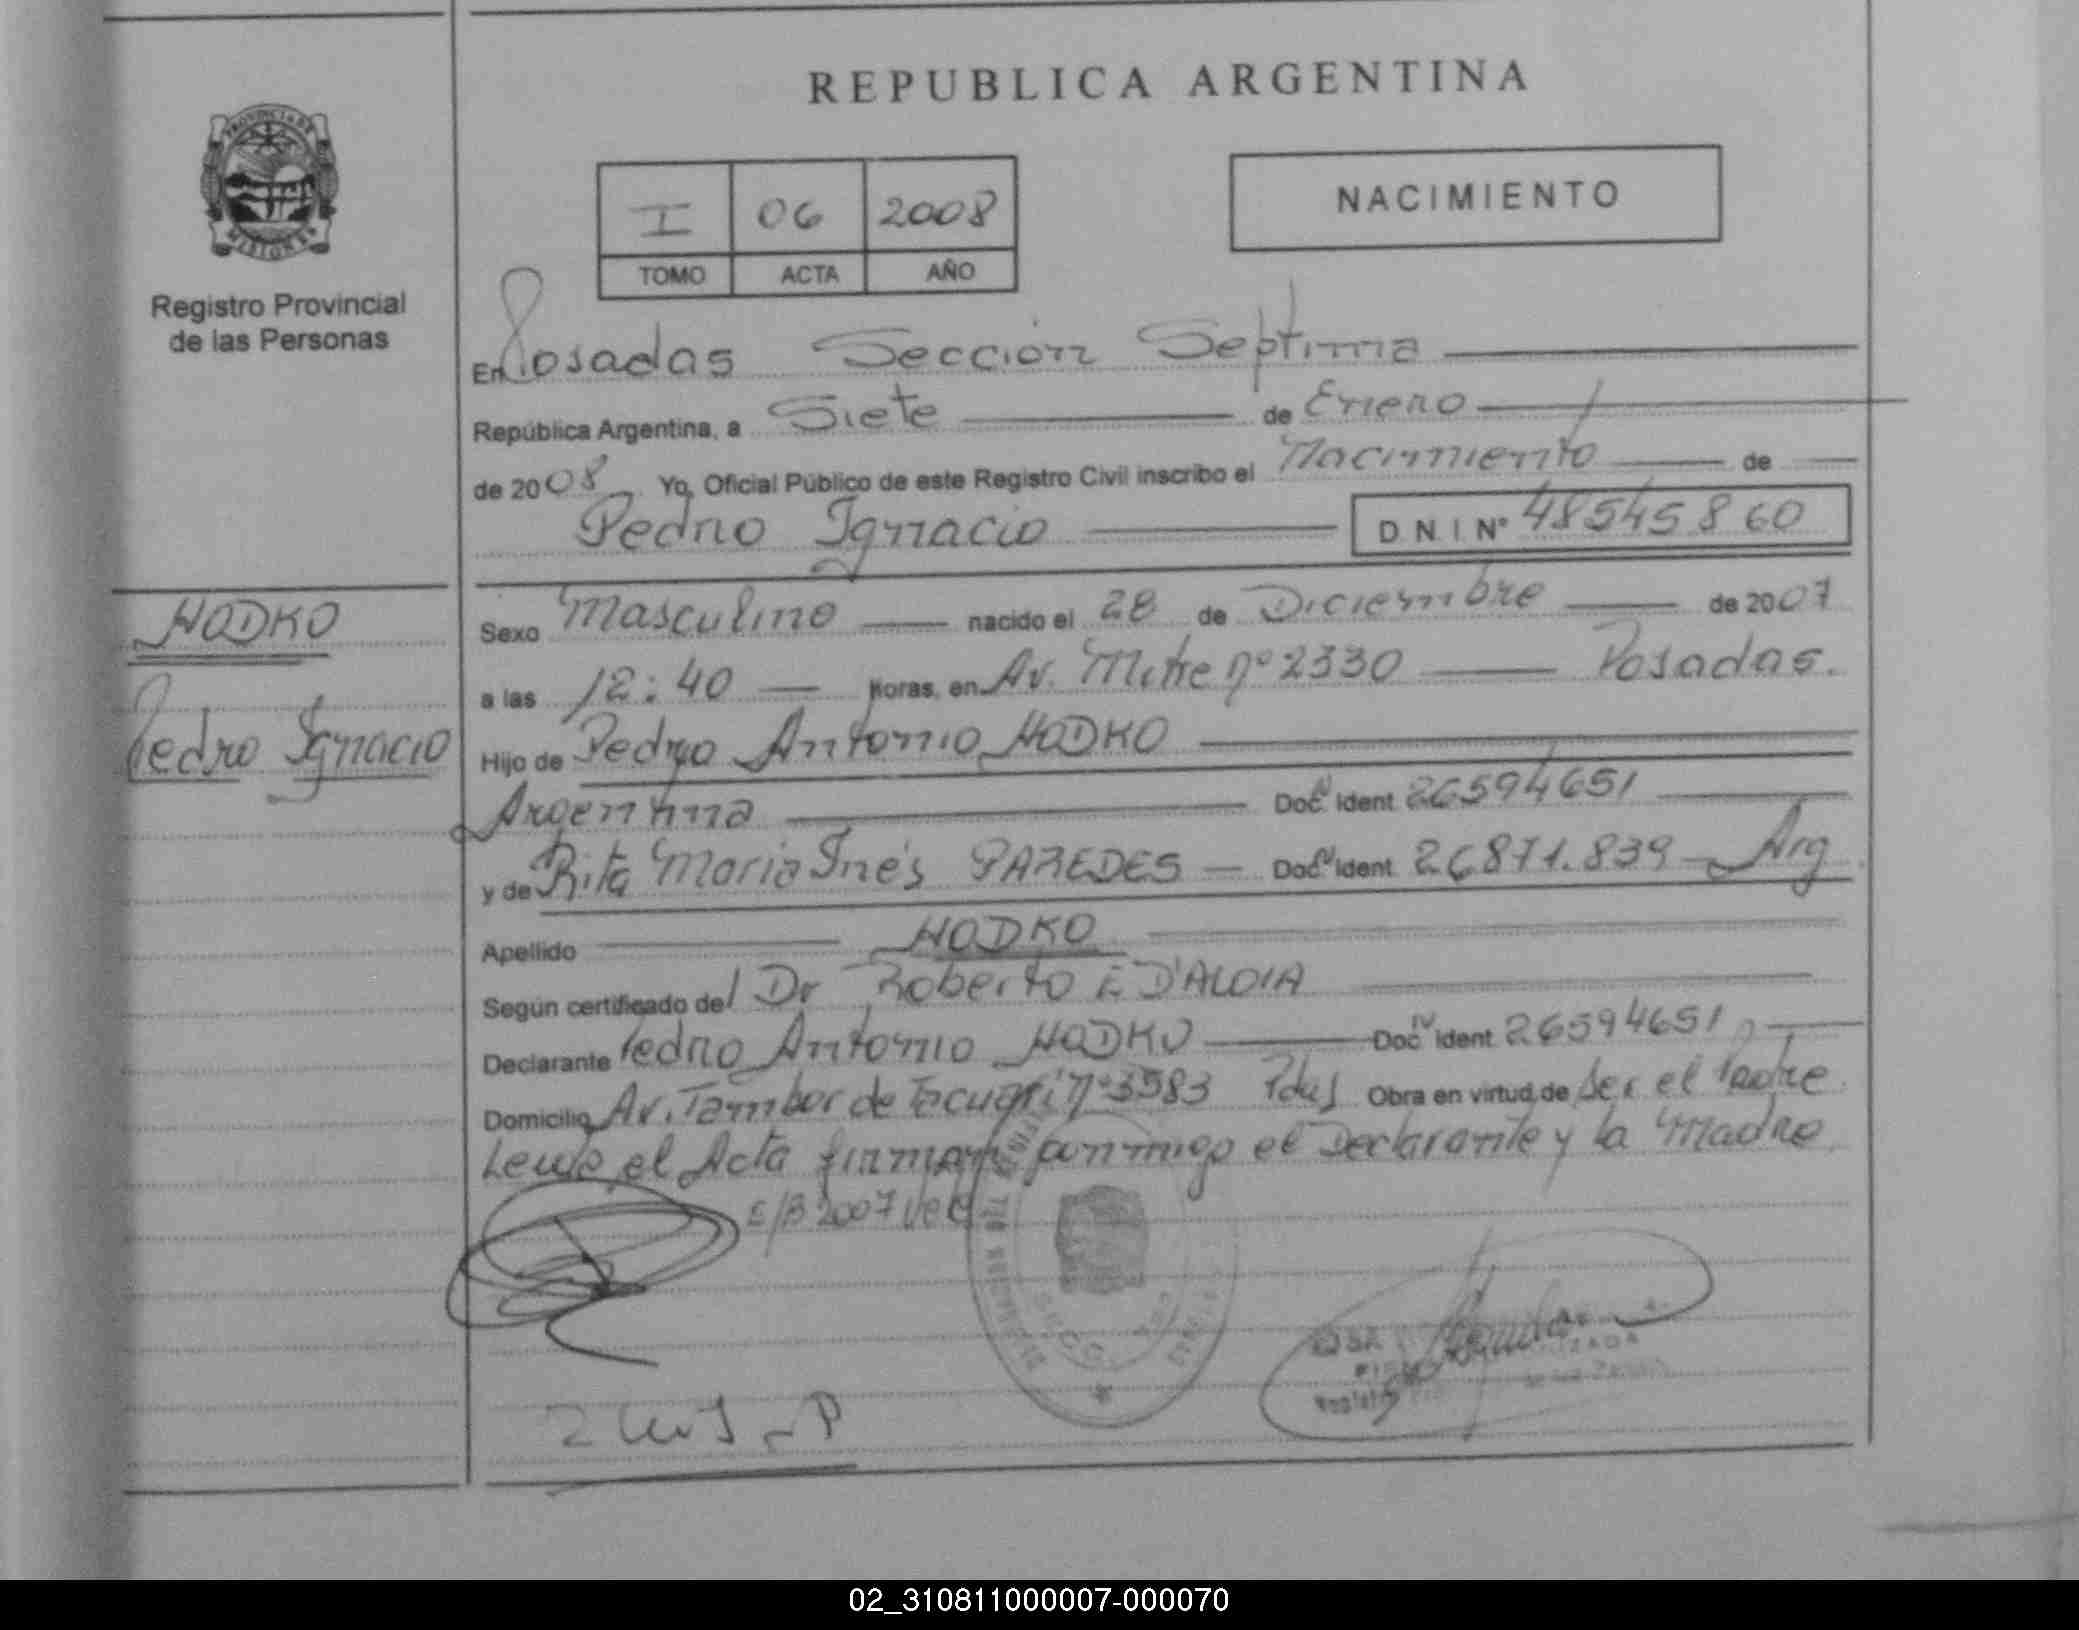 REPUBLICA ARGENTINA
PROVINCIA DE
MISIONES
Registro Provincial
de las Personas
I 06 2008
TOMO ACTA AÑO
NACIMIENTO
En Posadas Sección Septima
República Argentina, a Siete de Enero
de 2008 Yo, Oficial Público de este Registro Civil inscribo el Nacimiento de
Pedro Ignacio D N I Nº 48545860
HODKO
Pedro Ignacio
Sexo Masculino nacido el 28 de Diciembre de 2007
a las 12:40 horas, en Av. Mitre nº 2330 Posadas.
Hijo de Pedro Antonio HODKO
Argentina Doc. Ident 26594651
y de Rita Maria Inés PAREDES Doc. Ident 26871.839 Arg
Apellido HODKO
Según certificado del Dr Roberto E D'ALOIA
Declarante Pedro Antonio HODKO Doc. Ident 26594651
Domicilio Av. Tambor de Tacuarí nº 3583 Pdas Obra en virtud de Ser el Padre
Leída el Acta firman conmigo el Declarante y la Madre
E/B 2007 Vec
02_310811000007-000070